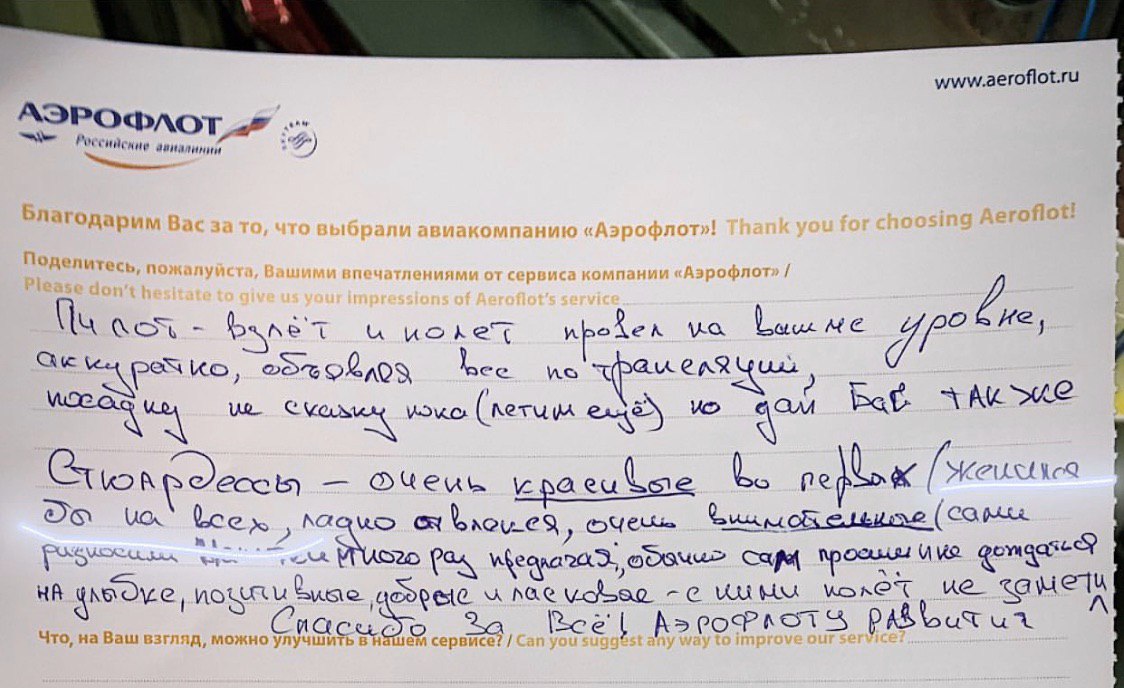 www.aeroflot.ru
АЭРОФЛОТ
Российские авиалинии
SKYTEAM
Благодарим Вас за то, что выбрали авиакомпанию «Аэрофлот»! Thank you for choosing Aeroflot!
Поделитесь, пожалуйста, Вашими впечатлениями от сервиса компании «Аэрофлот» /
Please don't hesitate to give us your impressions of Aeroflot's service
Пилот - взлёт и полет провел на высшме уровне,
аккуратно, объявлея все по транеляции,
посадку не скажу пока (летим ещё) но дай Бог также
Стюардессы - очень красивые во первах (женился
бы на всех, ладно отвлекся, очень внимательные (сами
разносили много раз предлагая, обычно сам просиш и не дождаться
на улыбке, позитивные, добрые и ласковае - с ними полёт не замети
Спасибо за Всё! Аэрофлоту развития
Что, на Ваш взгляд, можно улучшить в нашем сервисе? / Can you suggest any way to improve our service?